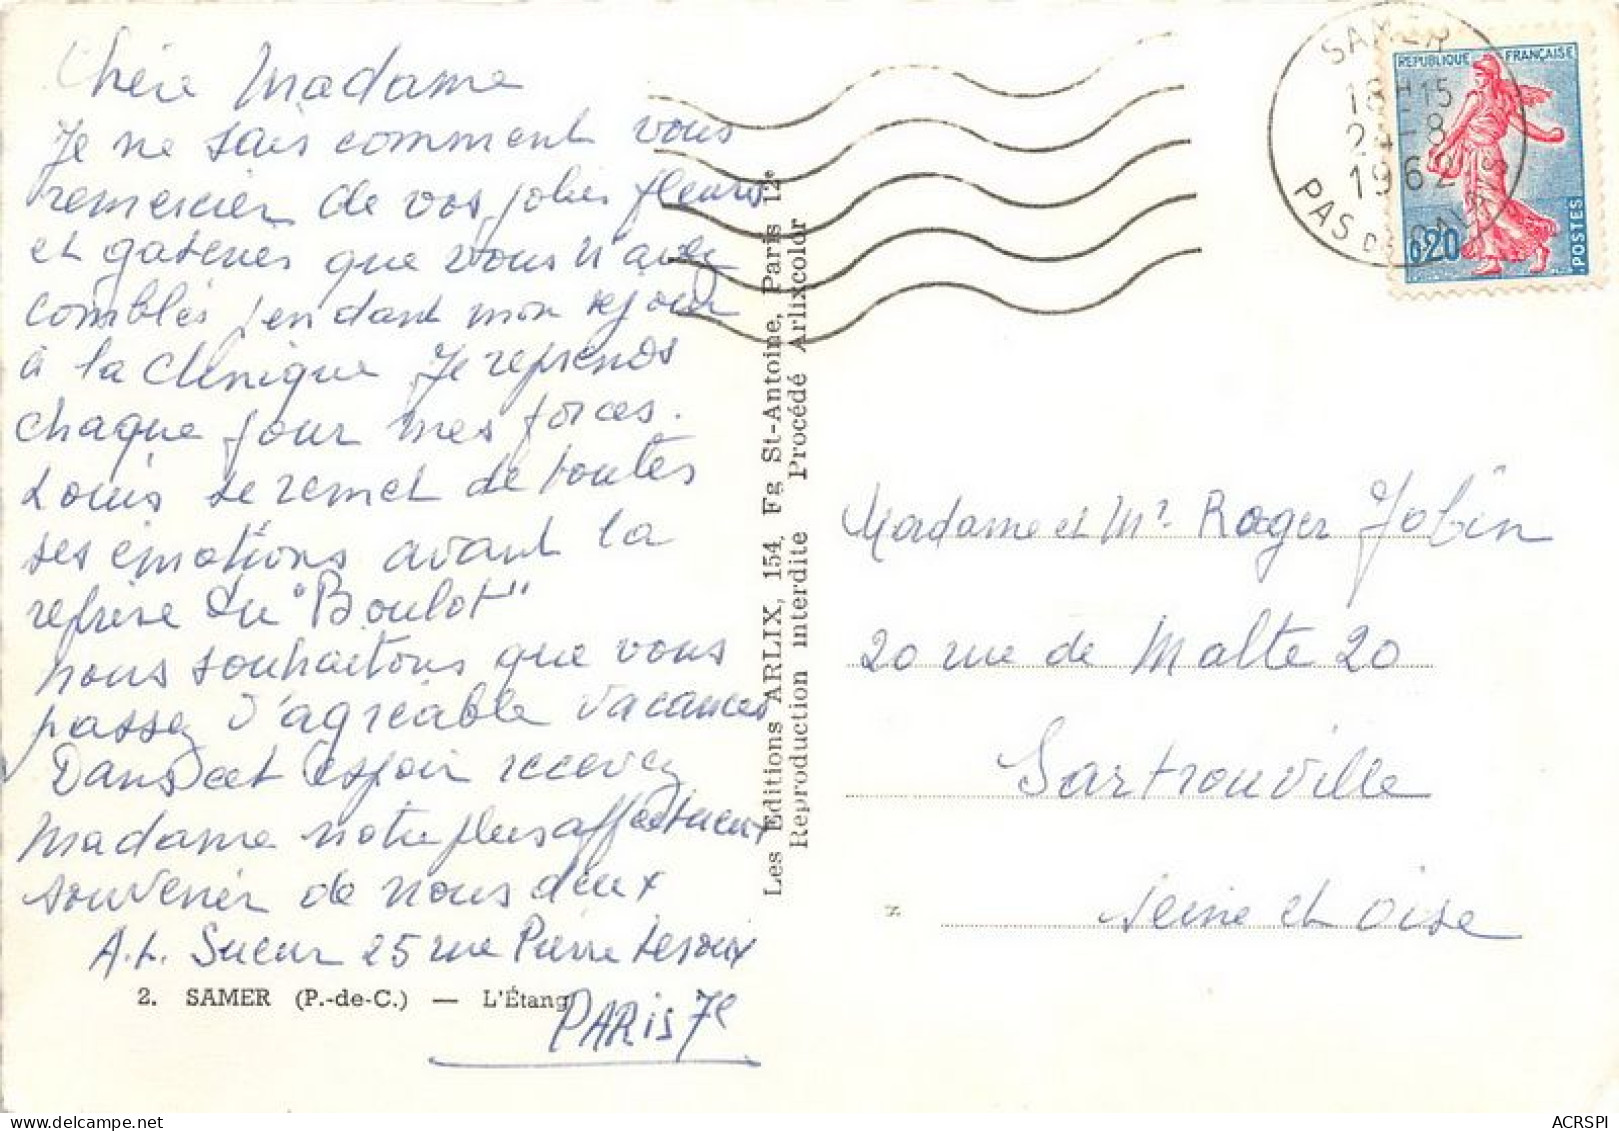 Chère Madame
Je ne sais comment vous
remercier de vos jolies fleurs
et gateries que vous n'avez
comblés pendant mon sejour
à la Clinique Je reprends
chaque jour mes forces.
Louis se remet de toutes
ses émotions avant la
reprise du "Boulot"
nous souhaitons que vous
passez d'agréable vacances
Dans cet espoir recevez
Madame notre plus affectueux
souvenir de nous deux
A.L. Sueur 25 rue Pierre Leroux
PARIS 7e
2. SAMER (P.-de-C.) — L'Étang
Les Editions ARLIX, 154, Fg St-Antoine, Paris 12e
Reproduction interdite Procédé Arlixcolor
SAMER
18H15
24-8
1962
PAS DE CALAIS
REPUBLIQUE FRANÇAISE
0,20
POSTES
Madame et Mr. Roger Jobin
20 rue de Malte 20
Sartrouville
Seine et Oise
delcampe.net
ACRSPI